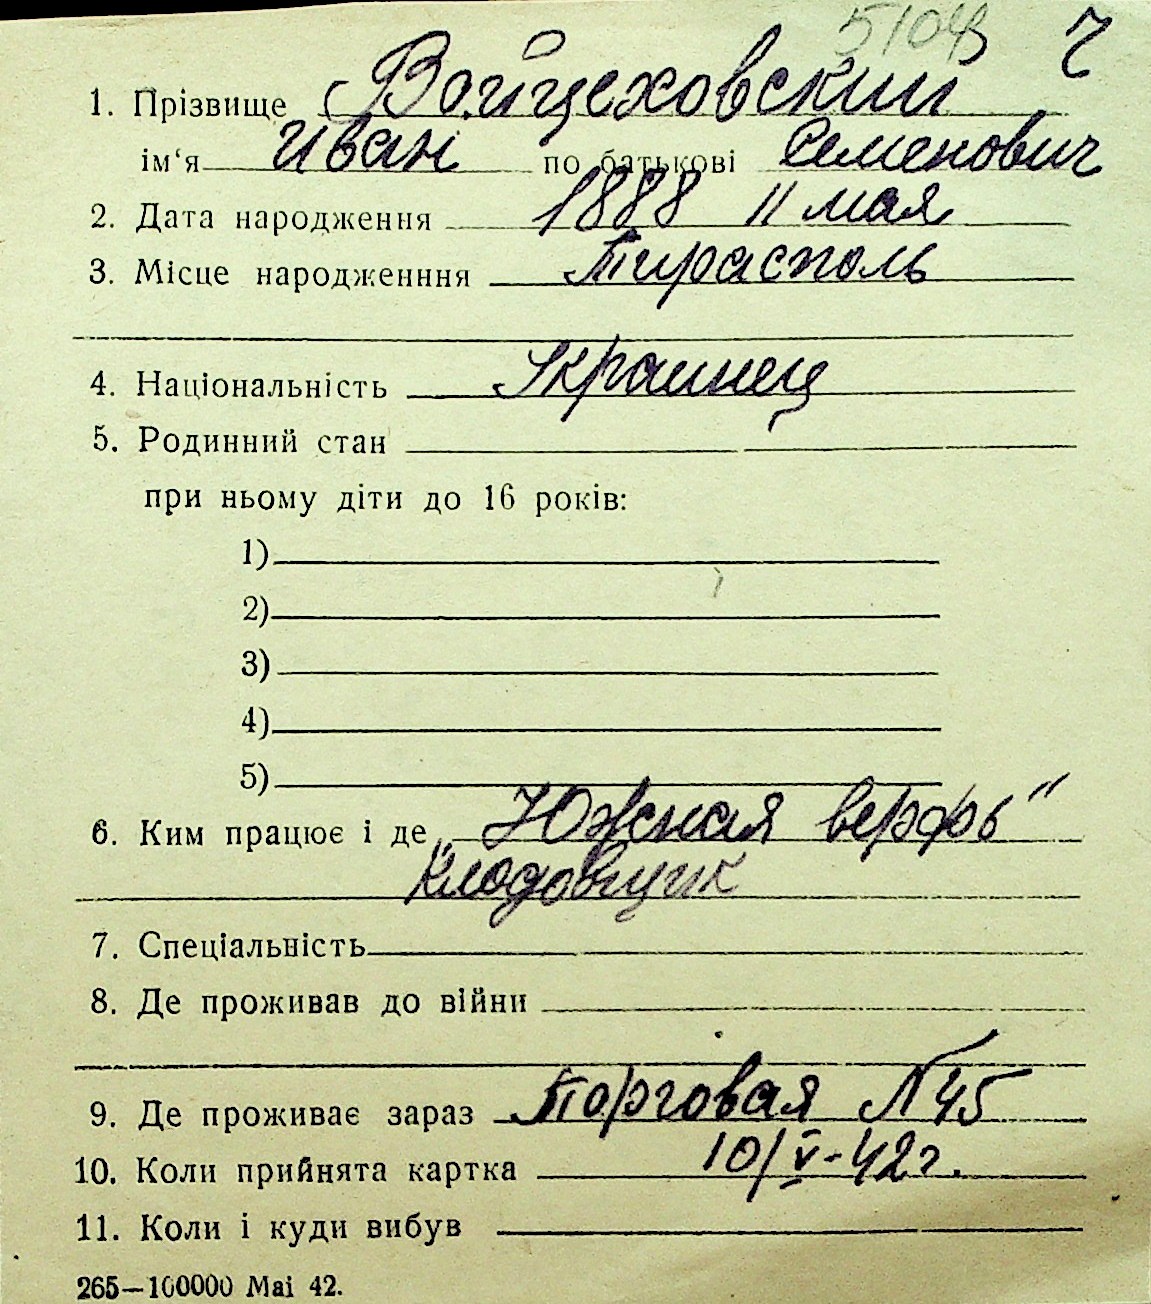 5104 Ч
1. Прізвище Войцеховский
ім‘я Иван по батькові Семенович
2. Дата народження 1888 11 мая
3. Місце народженння Тирасполь
4. Національність Украинец
5. Родинний стан
при ньому діти до 16 років:
1)
2)
3)
4)
5)
6. Ким працює і де „Южная верфь"
Кладовщик
7. Спеціальність
8. Де проживав до війни
9. Де проживає зараз Торговая № 45
10. Коли прийнята картка 10/V-42г.
11. Коли і куди вибув
265—100000 Mai 42.